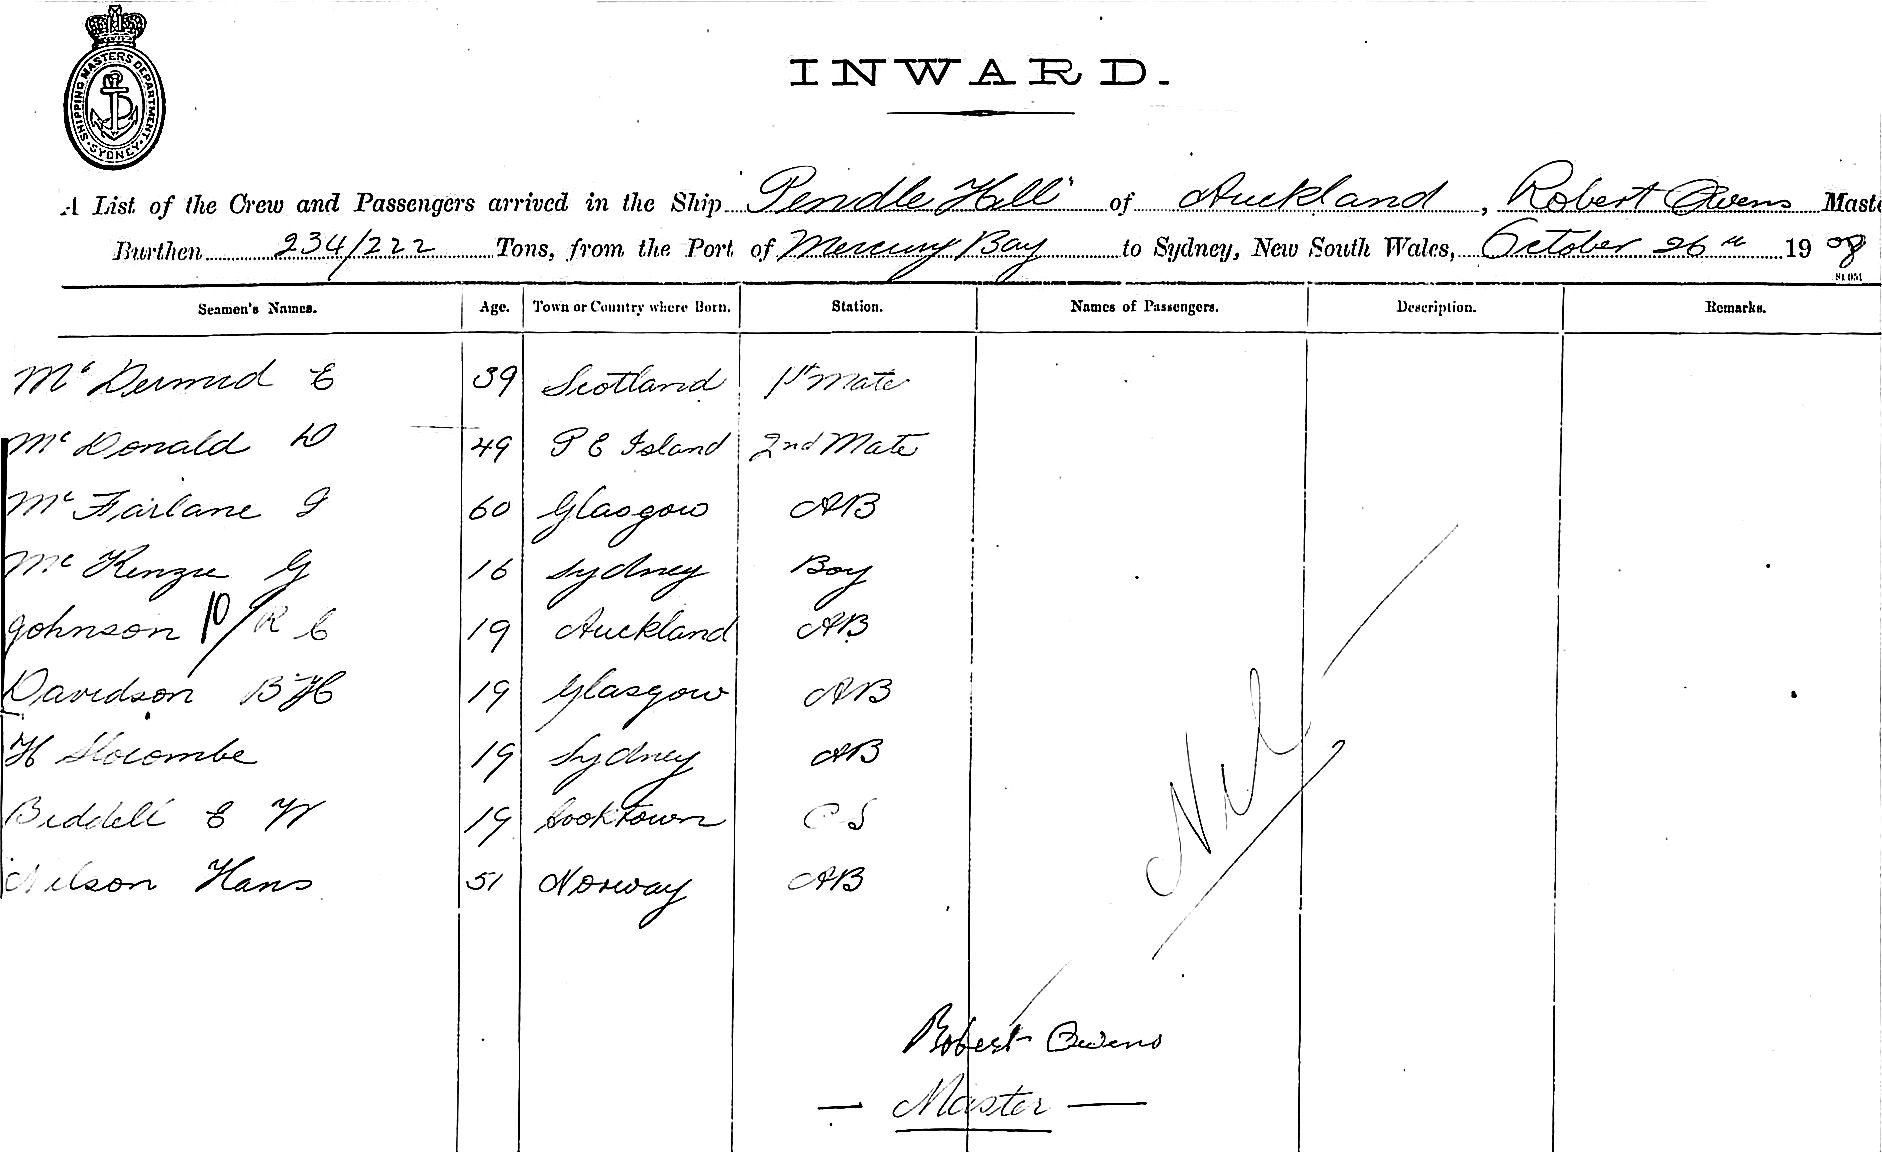 SHIPPING MASTERS DEPARTMENT
SYDNEY
INWARD.
A List of the Crew and Passengers arrived in the Ship "Pendle Hill" of Auckland, Robert Owens Maste
Burthen 234/222 Tons, from the Port of Mercury Bay to Sydney, New South Wales, October 26th 1908
Seamen's Names. Age. Town or Country where Born. Station. Names of Passengers. Description. Remarks.
McDermid E 39 Scotland 1st Mate
McDonald D 49 P E Island 2nd Mate
McFarlane J 60 Glasgow AB
McKenzie G 16 Sydney Boy
Johnson R C 19 Auckland AB
Davidson B H 19 Glasgow AB
H Slocombe 19 Sydney AB
Biddell E W 19 Cooktown O S
Nelson Hans 51 Norway AB
Nil
Robert Owens
— Master —